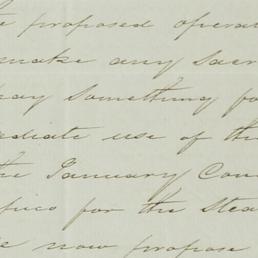 proposed operat
make any sacr
pay something fo
ediate use of the
the January Con
pico for the Stea
now propose